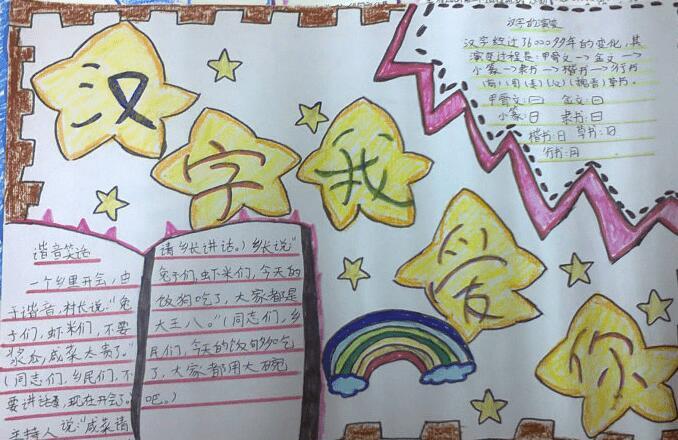 汉字我爱你
汉字的演变
汉字经过了6000多年的变化，其
演变过程是：甲骨文→金文→
小篆→隶书→楷书→行书
草书。
甲骨文：日 金文：日
小篆：日 隶书：日
楷书：日 草书：日
行书：日
谐音笑话
一个乡里开会，由
于谐音，村长说：“兔
子们，虾米们，不要
浆瓜，咸菜太贵了。”
（同志们，乡民们，不
要讲话，现在开会了。）
主持人说：“咸菜请
请乡长讲话。）乡长说“
兔子们，虾米们，今天的
饭狗吃了，大家都是
大王八。”（同志们，乡
民们，今天的饭够吃
了，大家都用大碗
吧。）